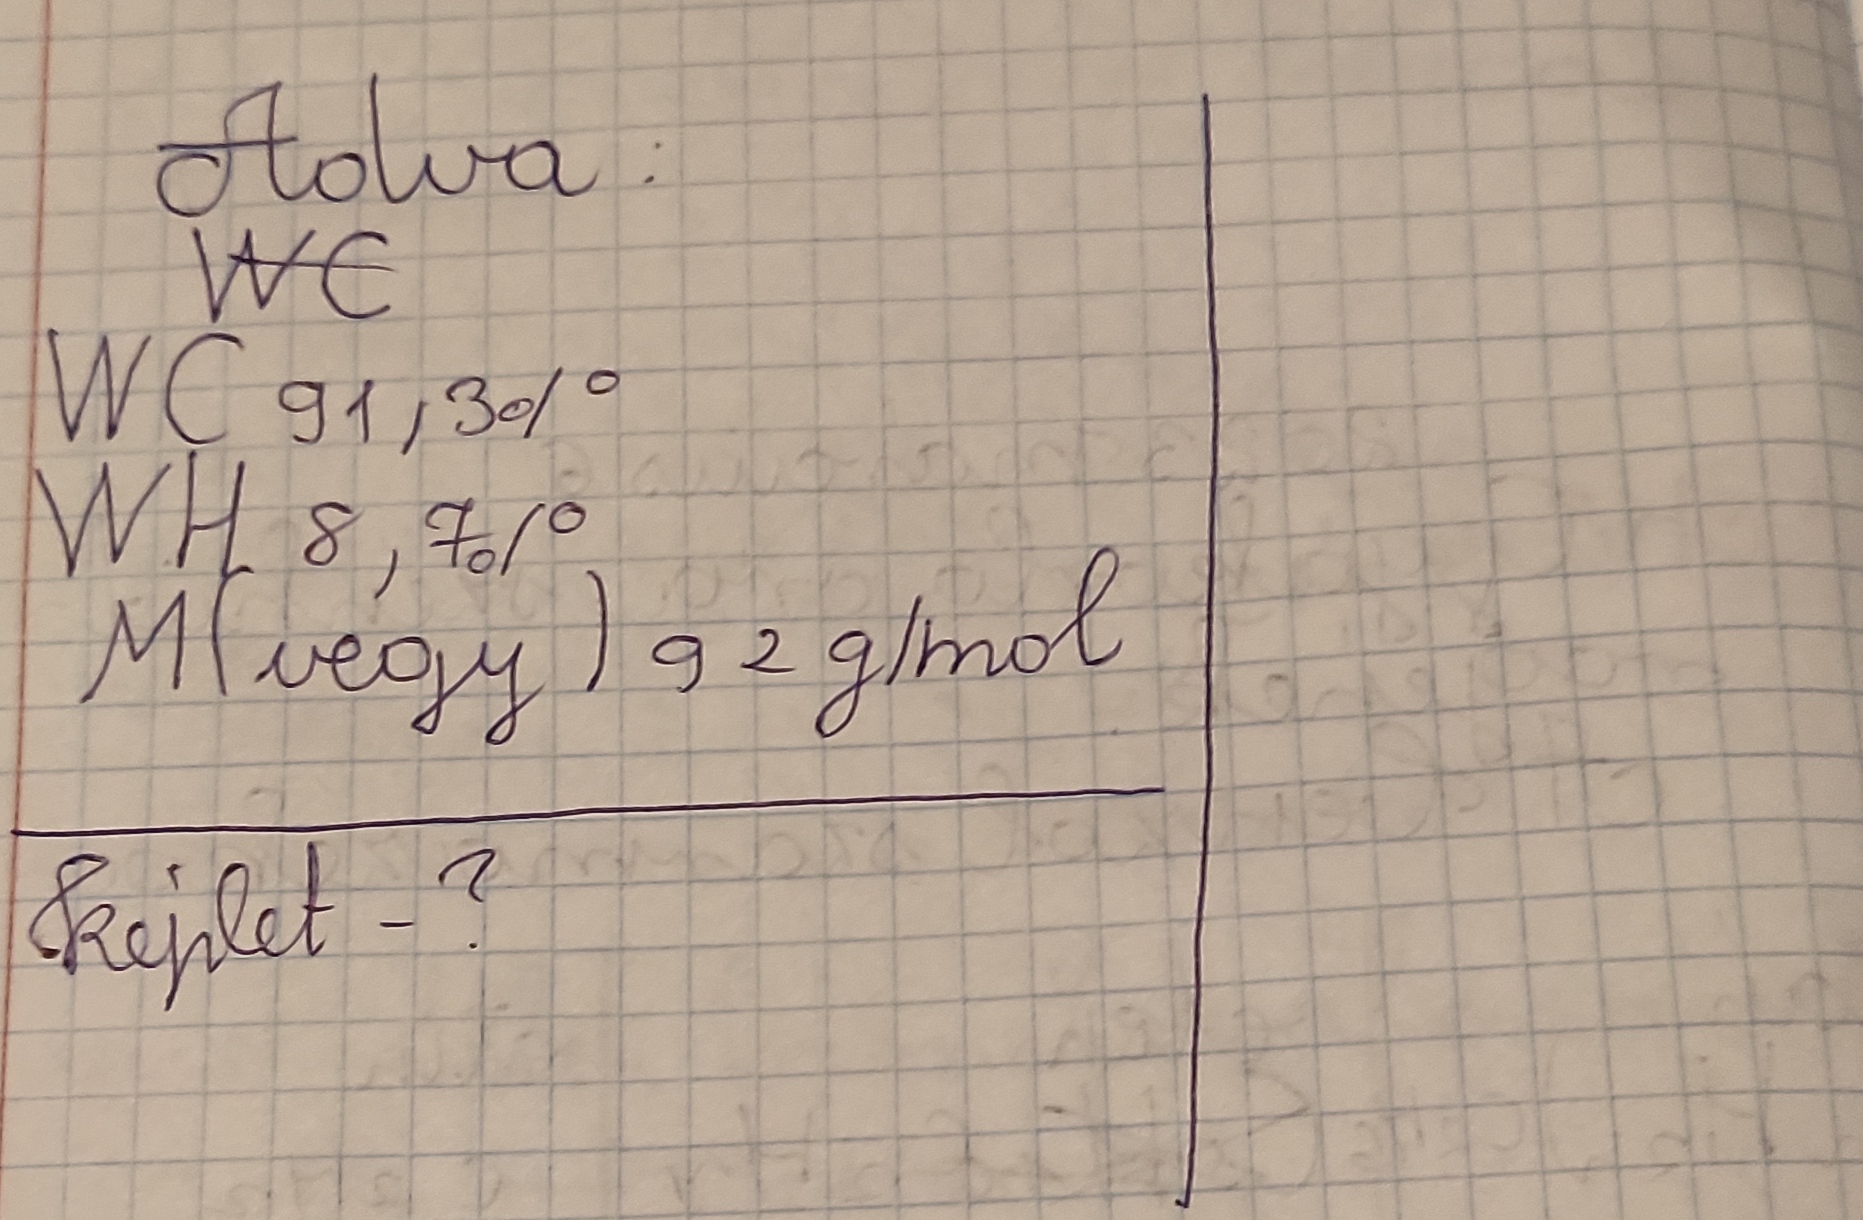 Adva:
WC 91,3%
WH 8,7%
M(vegy) 92 g/mol
Keplet - ?